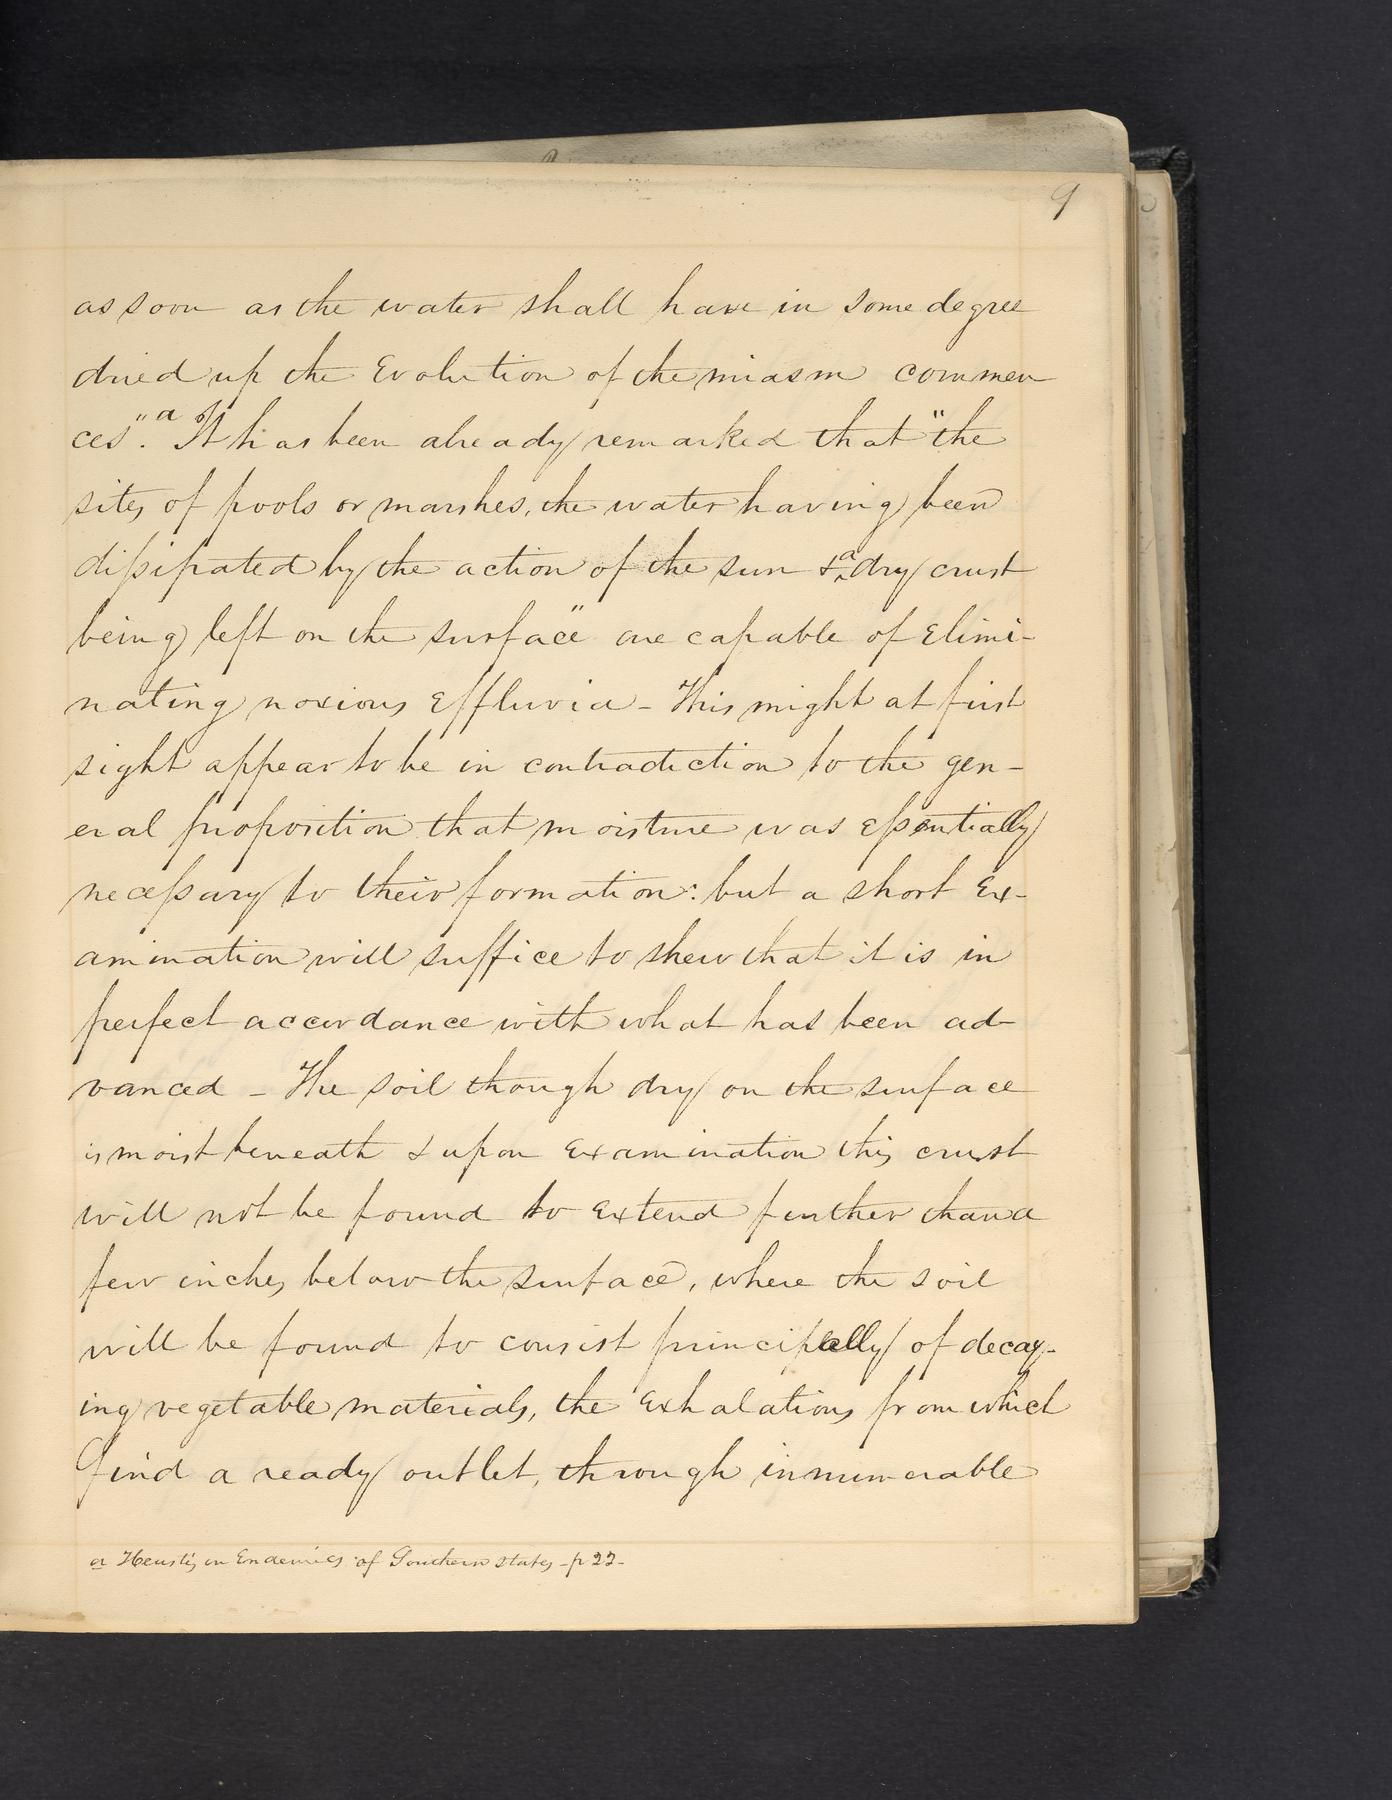 9
as soon as the water shall have in some degree
dried up the Evolution of the miasm commen
ces".a It has been already remarked that "the
sites of pools or marshes, the water having been
dissipated by the action of the sun & a dry crust
being left on the surface" are capable of Elimi-
nating noxious Effluvia - This might at first
sight appear to be in contradiction to the gen-
eral proposition that moisture was essentially
necessary to their formation: but a short Ex-
amination will suffice to shew that it is in
perfect accordance with what has been ad-
vanced - The soil though dry on the surface
is moist beneath & upon Examination this crust
will not be found to Extend further than a
few inches below the surface, where the soil
will be found to consist principally of decay-
ing vegetable materials, the Exhalations from which
find a ready outlet, through innumerable
a Heustis on Endemics of Southern states - p 22-